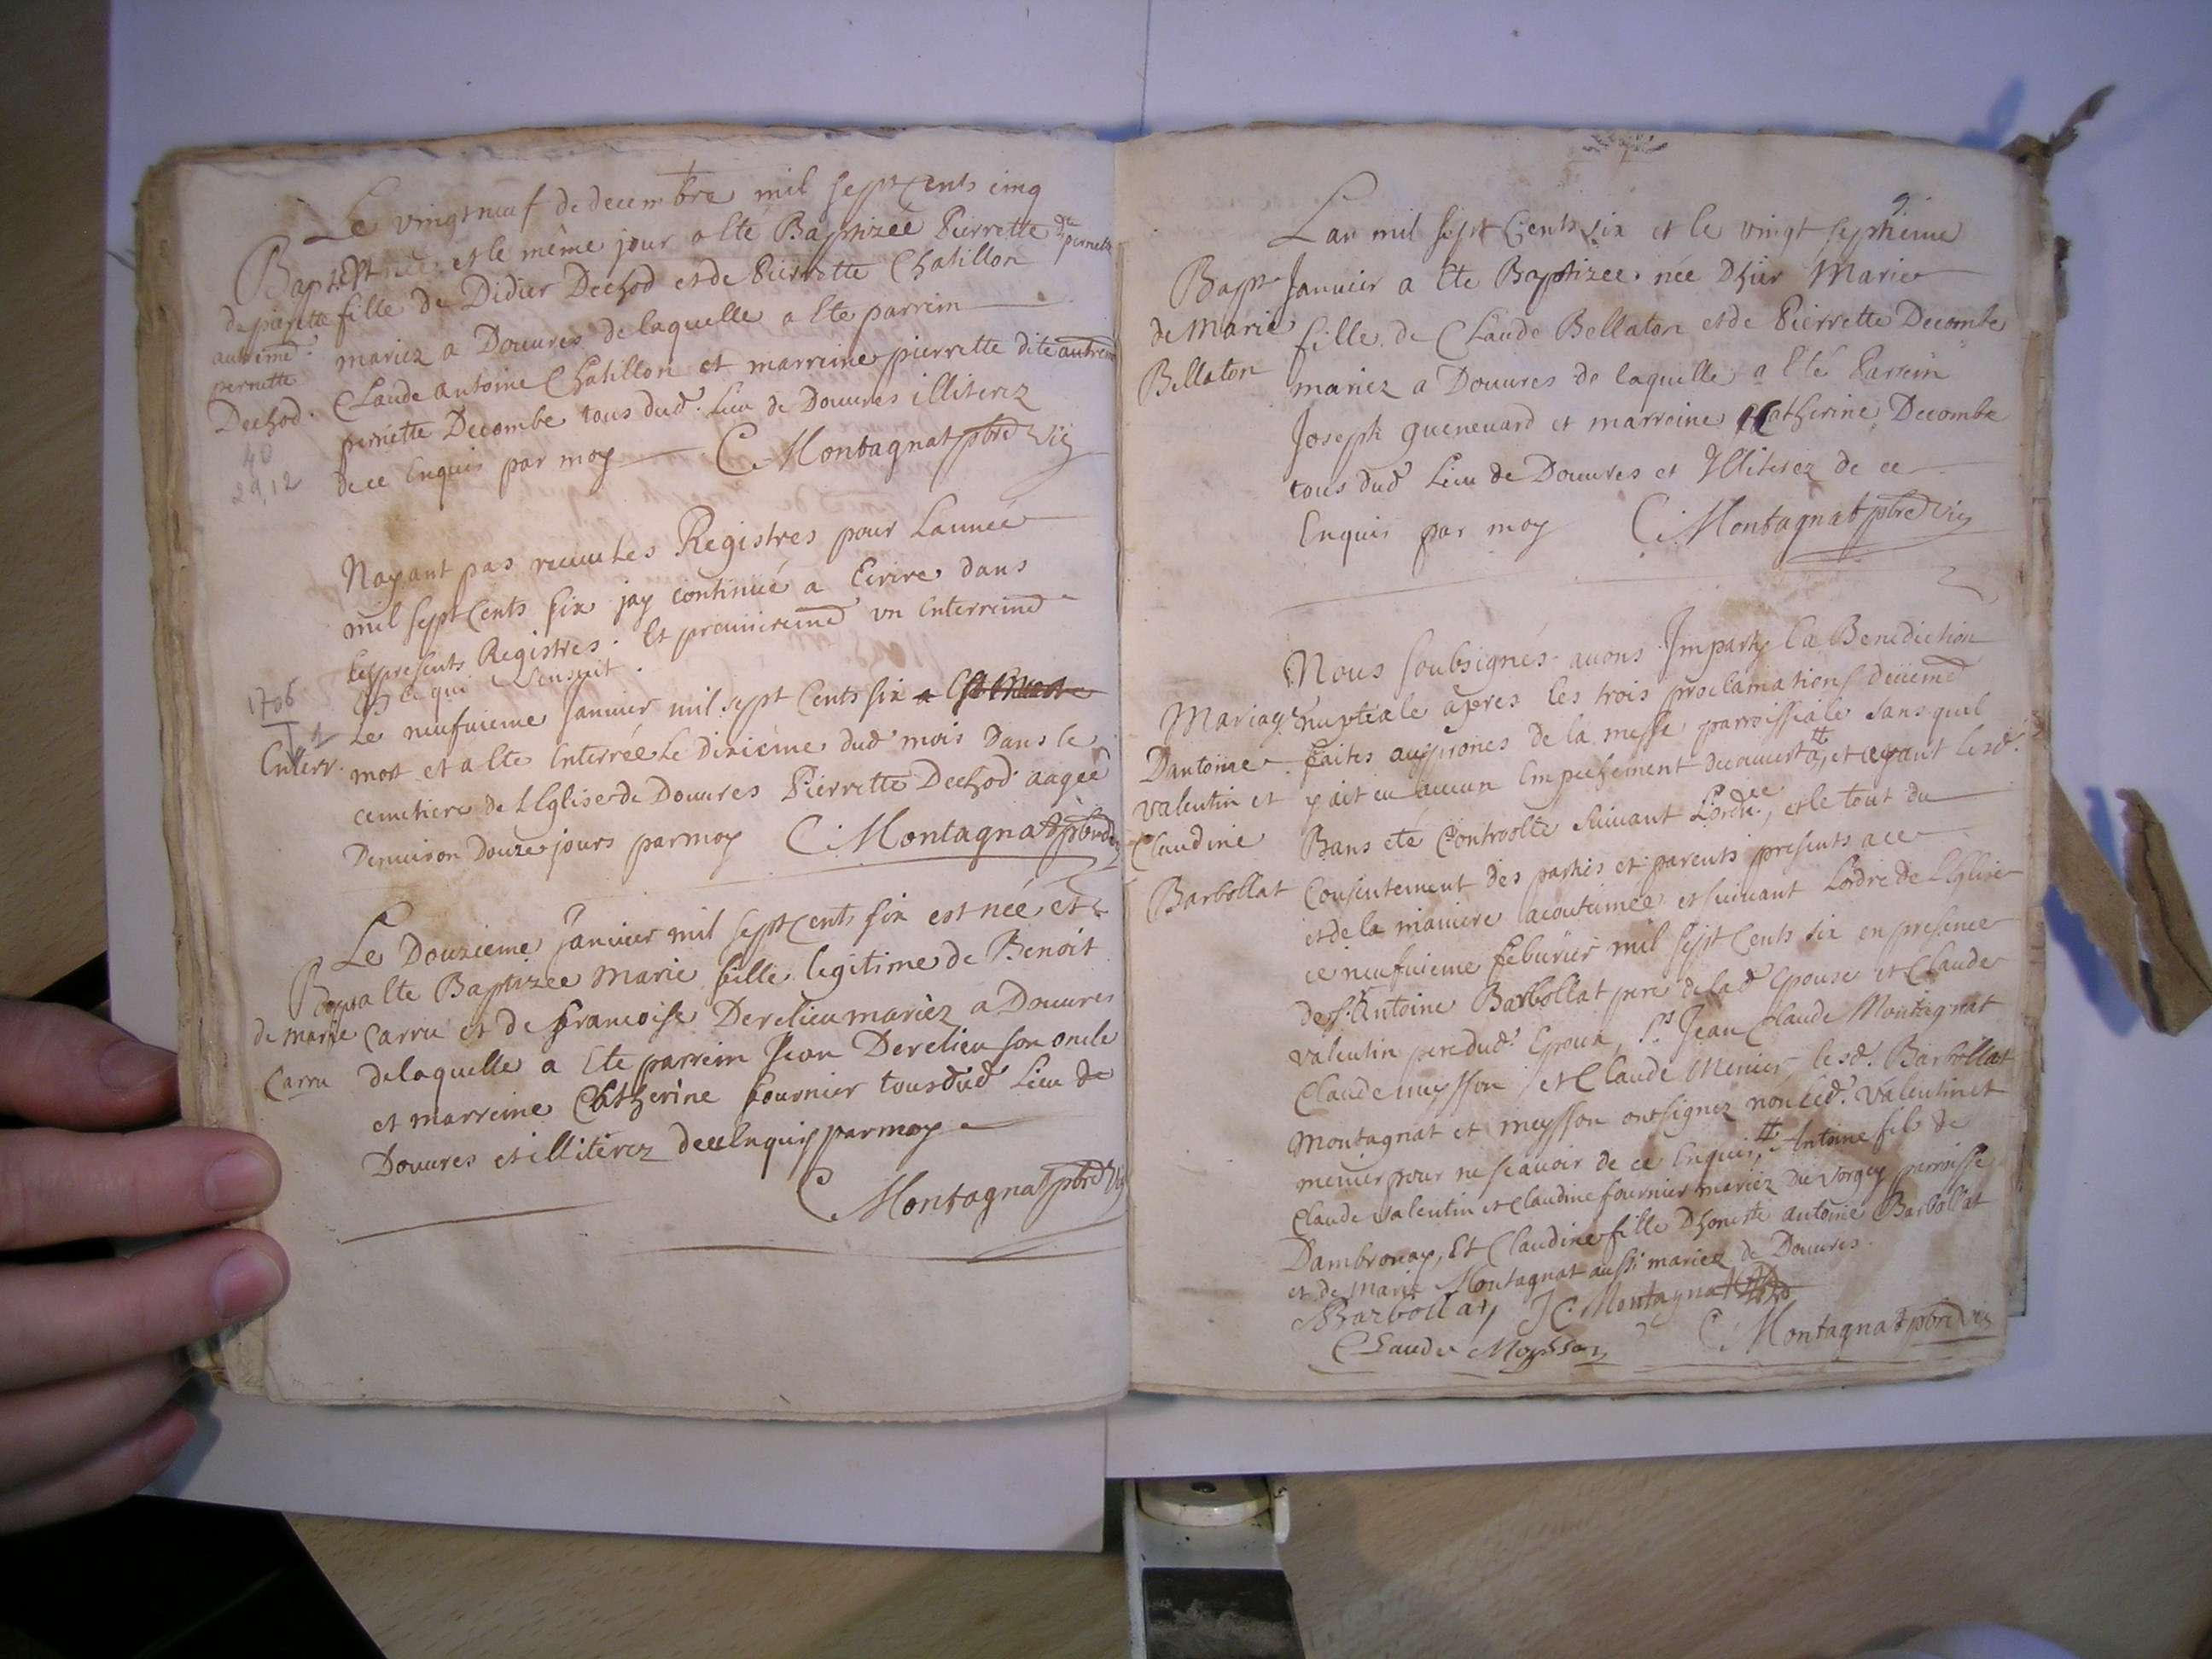 Le vingt neuf de decembre mil sept Cents cinq
Bapt. est née et le même jour a Eté Baptizée Pierrette dte pernette
de pierrette fille de Didier Dechod et de Pierrette Chatillon
autremt. mariez a Douures de laquelle a Ete parrein
pernette Claude Antoine Chatillon et marreine pierrette dite autremt
Dechod. pernette Decombe tous dud. Lieu de Douures illiterez
40 de ce Enquis par moy C Montagnat pbre vic
29,12
Nayant pas receu les Registres pour Lannée
mil sept Cents six jay continué a Ecrire dans
les presents Registres. Et premieremt un Enterremt
1706 ce qui sensuit.
1 Le neufuieme Januier mil sept Cents six a Est
Enterr. mort et a Ete Enterrée Le dixieme dud mois Dans le
cimetiere de LEglise de Douures Pierrette Dechod aagée
Denuiron Douze jours par moy C Montagnat pbre
Le Douzieme Januier mil sept Cents six est née et
Bapt. a Ete Baptizée Marie fille legitime de Benoit
de marie Carru et de francoise Derelieu mariez a Douures
Carru delaquelle a Ete parrein Jean Derelieu son oncle
et marreine Catherine fournier tous dud Lieu de
Douures et illiterez de ce Enquis par moy
C Montagnat pbre Vic
9
Lan mil sept Cents six et le vingt septieme
Bapt. Januier a Ete Baptizee née Dhier Marie
de Marie fille de Claude Bellaton et de Pierrette Decombe
Bellaton mariez a Douures de laquelle a Eté Parrein
Joseph gueneuard et marraine Catherine Decombe
tous dud Lieu de Douures et Illiterez de ce
Enquis par moy C Montagnat pbre Vic
Nous soubsignés auons Imparti la Benediction
Mariage nuptiale apres les trois proclamations deuemt
Dantoine faites aux prones de la messe parroissiale sans quil
valentin et y ait eu aucun Empechement decouuert, et ayant lesd.
Claudine Bans eté Controolé suiuant Lordce, et le tout du
Barbollat Consentement des parties et parents presents a ce
et de la maniere acoutumée et suiuant Lordre de LEglise
ce neufuieme feburier mil sept Cents six en presence
de sr. Antoine Barbollat pere de lad Epouse et Claude
valentin pere dud. Epoux, Sr Jean Claude Montagnat
Claude meysson et Claude Menier lesd. Barbollat
Montagnat et meysson ont signez non led. Valentin et
menier pour ne scauoir de ce Enquis, Antoine fils de
Claude valentin et Claudine fournier mariez du Vorgey parroisse
Dambronay, Et Claudine fille Dhoneste antoine Barbollat
et de Marie Montagnat aussi mariez de Douures.
Barbollat JC Montagnat
Claude Meysson C Montagnat pbre Vic